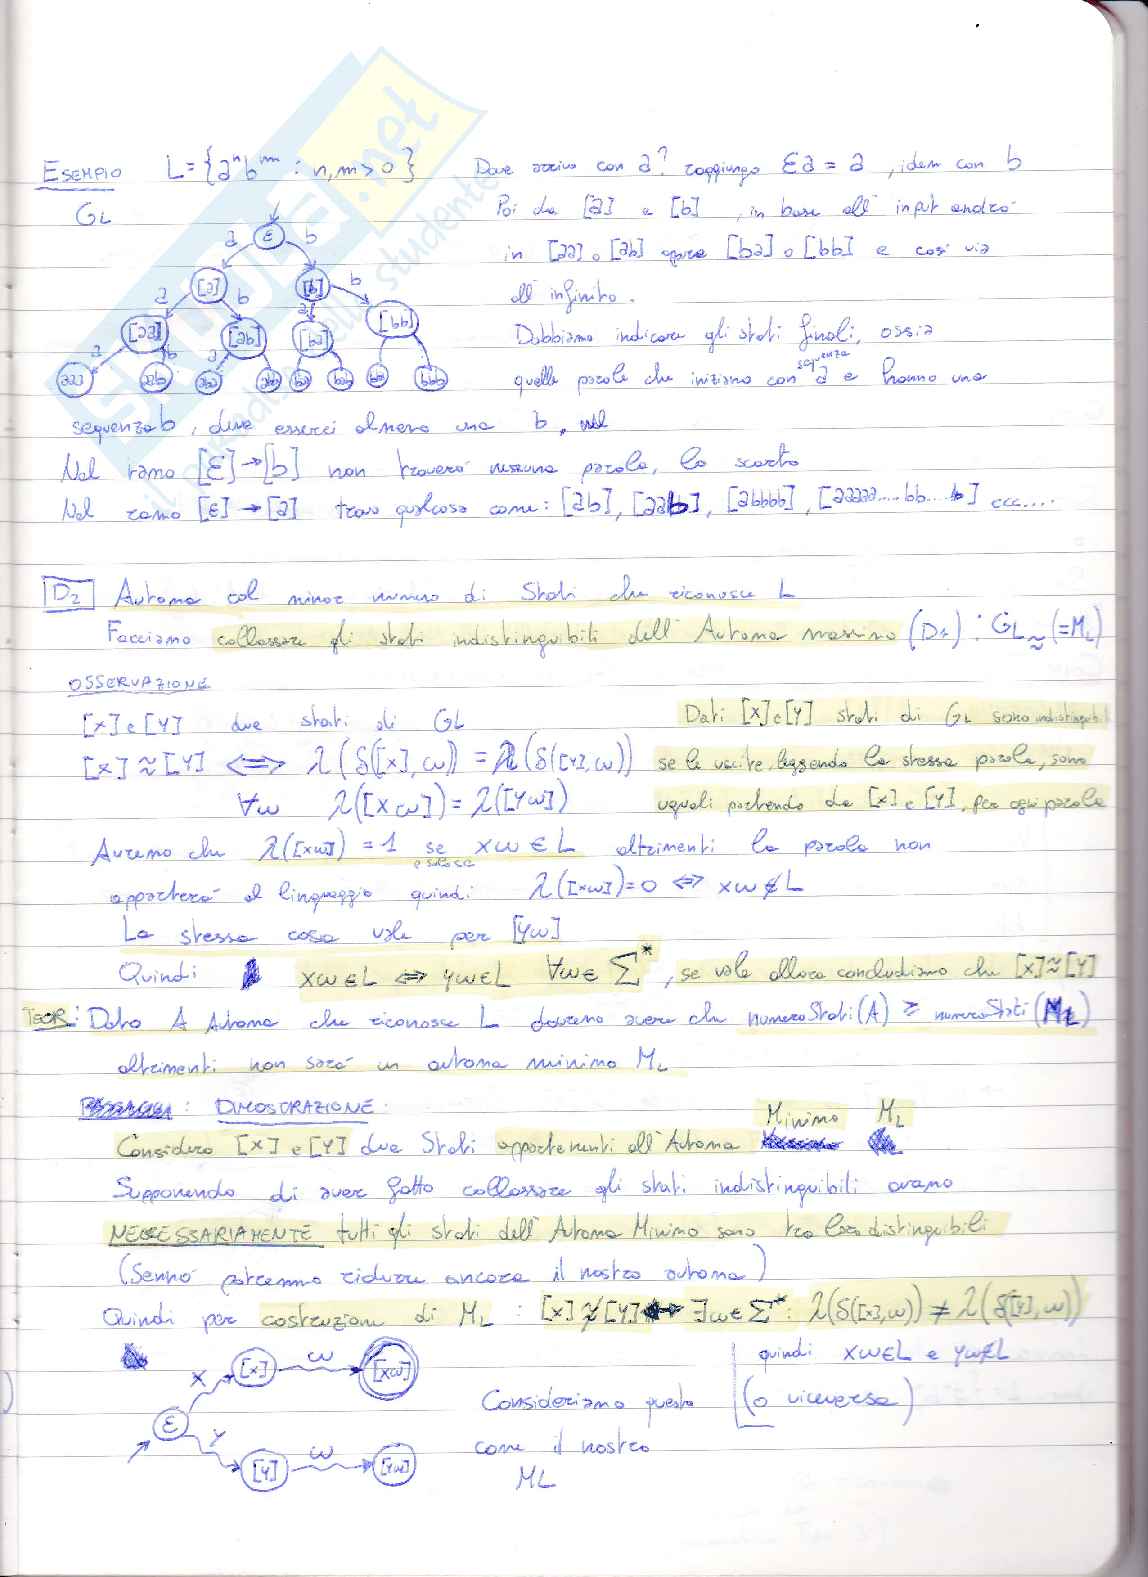 ESEMPIO L={aⁿbᵐ : n,m>0} Dove arrivo con a? raggiungo εa = a, idem con b
GL
Poi da [a] e [b], in base all'input andrò
in [aa] o [ab] oppure [ba] o [bb] e così via
all'infinito.
ε
a b
[a] [b]
a b a b
[aa] [ab] [ba] [bb]
a b a
aaa aab aba abb bbb
Dobbiamo indicare gli stati finali, ossia
quelle parole che iniziano con sequenza a e hanno una
sequenza b, deve esserci almeno una b,
Nel ramo [ε]→[b] non troverò nessuna parola, lo scarto
Nel ramo [ε]→[a] trovo qualcosa come: [ab], [aab], [abbbb], [aaaaa.....bb....b] ecc....
D2 Automa col minor numero di Stati che riconosce L
Facciamo collassare gli stati indistinguibili dell'Automa massimo (D1) : GL≈ (=ML)
OSSERVAZIONE
[x] e [y] due stati di GL
Dati [x] e [y] stati di GL sono indistinguibili
[x]≈[y] ⟺ λ(δ([x],ω)) = λ(δ([y],ω))
se le uscite, leggendo la stessa parola, sono
∀ω λ([xω]) = λ([yω])
uguali partendo da [x] e [y], per ogni parola
Avremo che λ([xω]) = 1 se e solo se xω∈L altrimenti la parola non
apparterà al linguaggio quindi: λ([xω])=0 ⟺ xω∉L
La stessa cosa vale per [yω]
Quindi xω∈L ⟺ yω∈L ∀ω∈Σ*, se vale allora concludiamo che [x]≈[y]
TEOR: Dato A Automa che riconosce L dovremo avere che numeroStati(A) ≥ numeroStati(ML)
altrimenti non sarà un automa minimo ML
: DIMOSTRAZIONE:
Considero [x] e [y] due Stati appartenenti all'Automa Minimo ML
Supponendo di aver fatto collassare gli stati indistinguibili avremo
NECESSARIAMENTE tutti gli stati dell'Automa Minimo sono tra loro distinguibili
(Sennò potremmo ridurre ancora il nostro automa)
Quindi per costruzione di ML : [x]≉[y] ⟺ ∃ω∈Σ*: λ(δ([x],ω)) ≠ λ(δ([y],ω))
quindi xω∈L e yω∉L
(o viceversa)
ε x [x] ω [xω]
y [y] ω [yω]
Consideriamo questo
come il nostro
ML